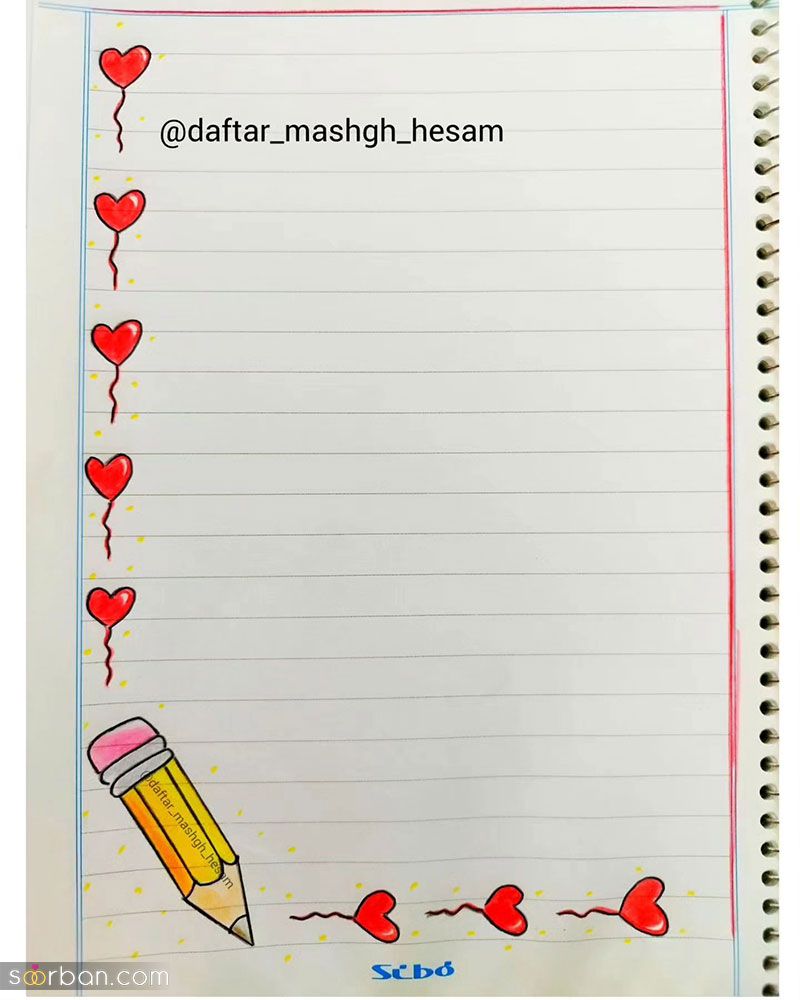 @daftar_mashgh_hesam
@daftar_mashgh_hesam
Sibo
soorban.com